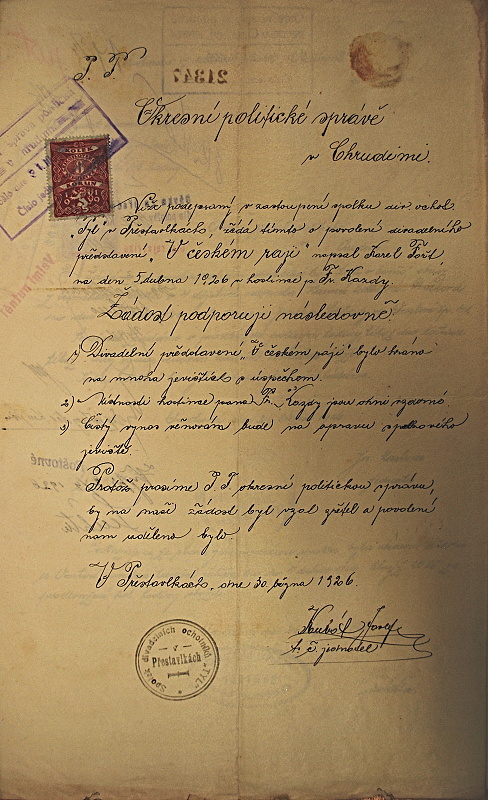 P. T.
21347
Okresní politické správě
v Chrudimi.
KOLEK
KORUN
5
Níže podepsaný v zastoupení spolku div. ochot.
„Tyl" v Přestavlkách, žádá tímto o povolení divadelního
představení „V českém ráji" napsal Karel Fořt,
na den 5 dubna 1926 v hostinci p. Fr. Kazdy.
Žádost podporuji následovně.
1) Divadelní představení „V českém ráji" bylo hráno
na mnoha jevištích s úspěchem.
2) Místnosti hostince pana Fr. Kazdy jsou ohni vzdorné.
3) Čistý výnos věnován bude na opravu spolkového
jeviště.
Pročož prosíme P. T. okresní politickou správu,
by na naši žádost byl vzat zřetel a povolení
nám uděleno bylo.
V Přestavlkách, dne 30. března 1926.
Josef
t. č. jednatel
Spolek divadelních ochotníků "TYL"
v
Přestavlkách